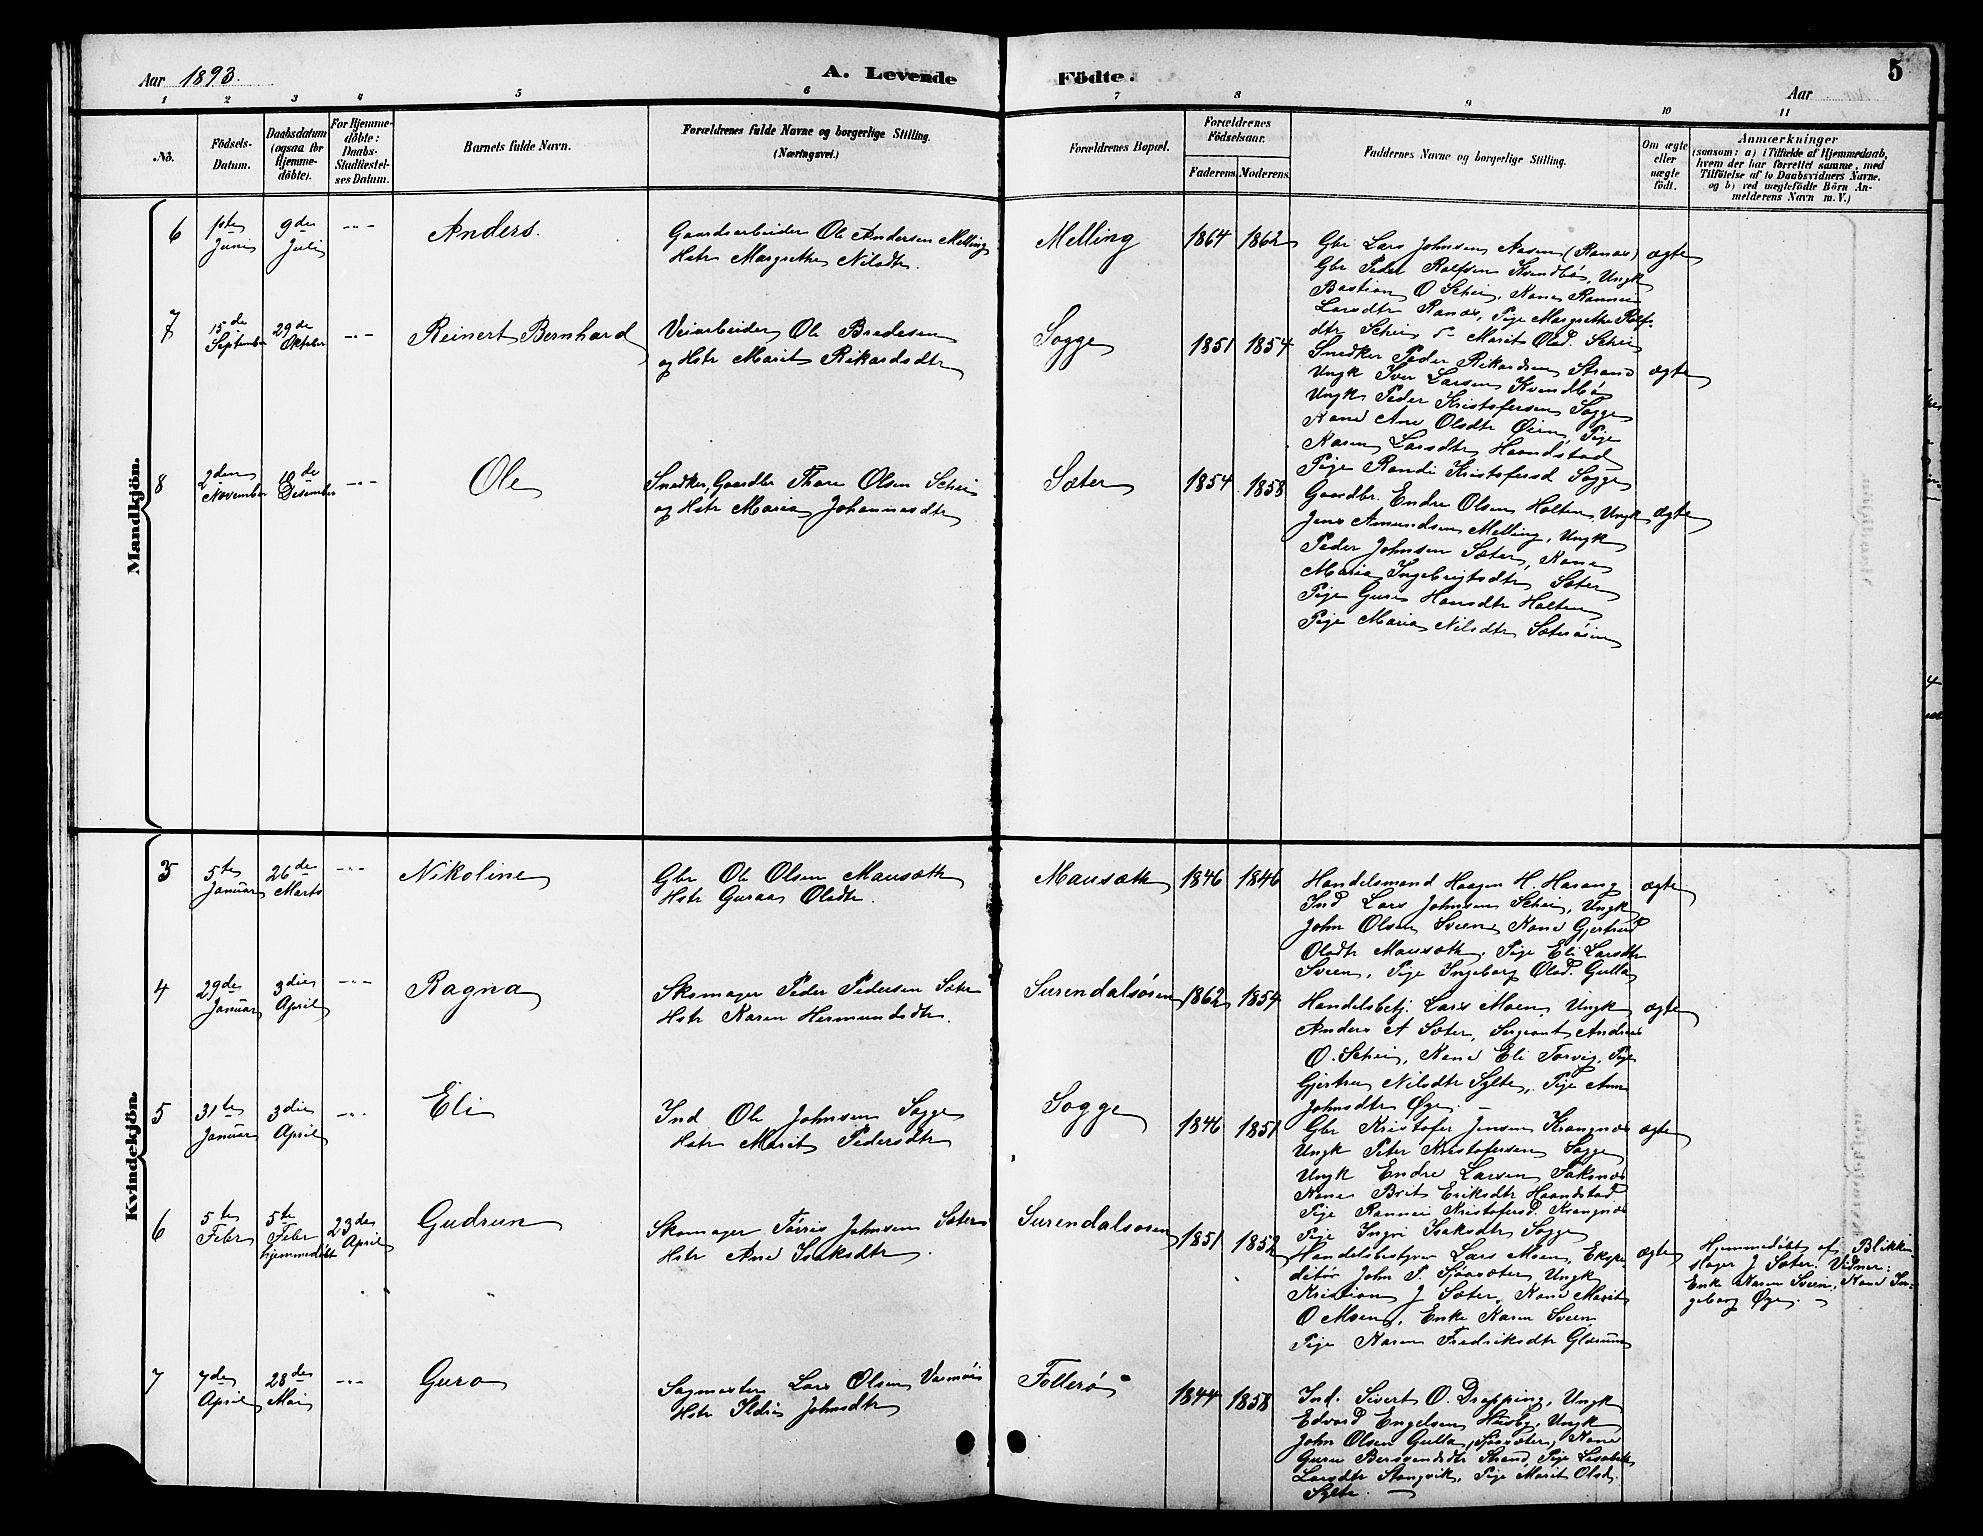 Aar 1893.
A. Levende Födte.
5
Aar
1 2 3 4 5 6 7 8 9 10 11
No.
Födsels-
Datum.
Daabsdatum
(ogsaa for
Hjemme-
döbte).
For Hjemme-
döbte:
Daabs-
Stadfæstel-
ses Datum.
Barnets fulde Navn.
Forældrenes fulde Navne og borgerlige Stilling.
(Næringsvei.)
Forældrenes Bopæl.
Forældrenes
Födselsaar.
Faderens. Moderens.
Faddernes Navne og borgerlige Stilling.
Om ægte
eller
uægte
födt.
Anmærkninger
(saasom: a) i Tilfælde af Hjemmedaab,
hvem der har forrettet samme, med
Tilföielse af to Daabsvidners Navne.
og b) ved uægtefödte Börn An-
melderens Navn m. V.)
Mandkjön.
6
1ste
Juni
9de
Juli
-"-
Anders.
Gaardsarbeider Ole Andersen Melling
Hstr Margrethe Nilsdtr.
Melling
1864 1862
Gbr Lars Johnsen Aasen (Ranæs)
Gbr Peder Rolfsen Kvendbö, Ungk
Bastian O Schei, Kone Rannei
Larsdtr Ranæs, Pige Margrethe Rolf-
dtr Schei Marit Olsd. Schei
ægte
7
15de
September
29de
Oktober
-"-
Reinert Bernhard
Veiarbeider Ole Bredesen
og Hstr Marit Rikardsdtr
Sogge
1851 1854
Snedker Peder Rikardsen Strand
Ungk Iver Larsen Kvendbö
Ungk Peder Kristofersen Sogge
Kone Ane Olsdtr Öien, Pige
Karen Larsdtr Haandstad
Pige Randi Kristofersd Sogge
ægte
8
2den
November
18de
Desember
-"-
Ole
Snedker, Gaardbr Thore Olsen Schei
og Hstr Maria Johannesdtr
Sæter
1854 1858
Gaardbr. Endre Olsen Holten, Ungk
Jens Amundsen Melling, Ungk
Peder Johnsen Sæter, Kone
Maria Ingebrigtsdtr Sæter
Pige Guri Hansdtr Holten
Pige Maria Nilsdtr Sæterøien
ægte
Kvindekjön.
3
5te
Januar
26de
Marts
-"-
Nikoline
Gbr Ole Olsen Mausæth
Hstr Guraa Olsdtr.
Mausæth
1846 1846
Handelsmand Haagen H. Harang
Ind Lars Johnsen Schei, Ungk
John Olsen Sveen, Kone Gjertrud
Olsdtr Mausæth. Pige Eli Larsdtr
Sveen, Pige Ingeborg Olsd. Gulla
ægte
4
29de
Januar
3die
April
-"-
Ragna
Skomager Peder Pedersen Sæter
Hstr Karen Hermundsdtr.
Surendalsøren
1862 1854
Handelsbetj. Lars Moen, Ungk
Anders A Sæter, Sergeant Andreas
O. Schei, Kone Eli Torvig, Pige
Gjertru Nilsdtr Sylte, Pige Ane
Johnsdtr Øye.
ægte
5
31te
Januar
3die
April
-"-
Eli
Ind Ole Johnsen Sogge
Hstr Marit Pedersdtr
Sogge
1846 1851
Gbr Kristofer Jensen Krangnæs
Ungk Peter Kristofersen Sogge
Ungk Endre Larsen Saksnæs
Kone Brit Eriksdtr Haandstad
Pige Rannei Kristofersd. Krangnæs
Pige Ingri Isaksdtr Sogge
ægte
6
5te
Febr
5te
Febr
hjemmedöbt
23de
April
Gudrun
Skomager Töris Johnsen Sæter
Hstr Ane Isaksdtr.
Surendalsøren
1851 1852
Handelsbestyrer Lars Moen, Ekspe
ditör John P. Sjöasæter, Ungk
Kristian J Sæter, Kone Marit
O Moen, Enke Karen Sveen
Pige Karen Fredriksdtr Glærum
ægte
Hjemmedöbt af Blikken-
slager J Sæter. Vidner:
Enke Karen Sveen, Kone In-
geborg Øye.
7
7de
April
28de
Mai
-"-
Guro
Sagmester Lars Olsen
Hstr Ildri Johnsdtr
Follerö
1844 1858
Ind. Sivert O. Drøpping, Ungk
Edvard Engelsen Husby, Ungk
John Olsen Gulla (Sjöasæter), Kone
Guru Bersvendsdtr Strand, Pige Lisabeth
Larsdtr Stangvik, Pige Marit Olsd.
Sylte.
ægte